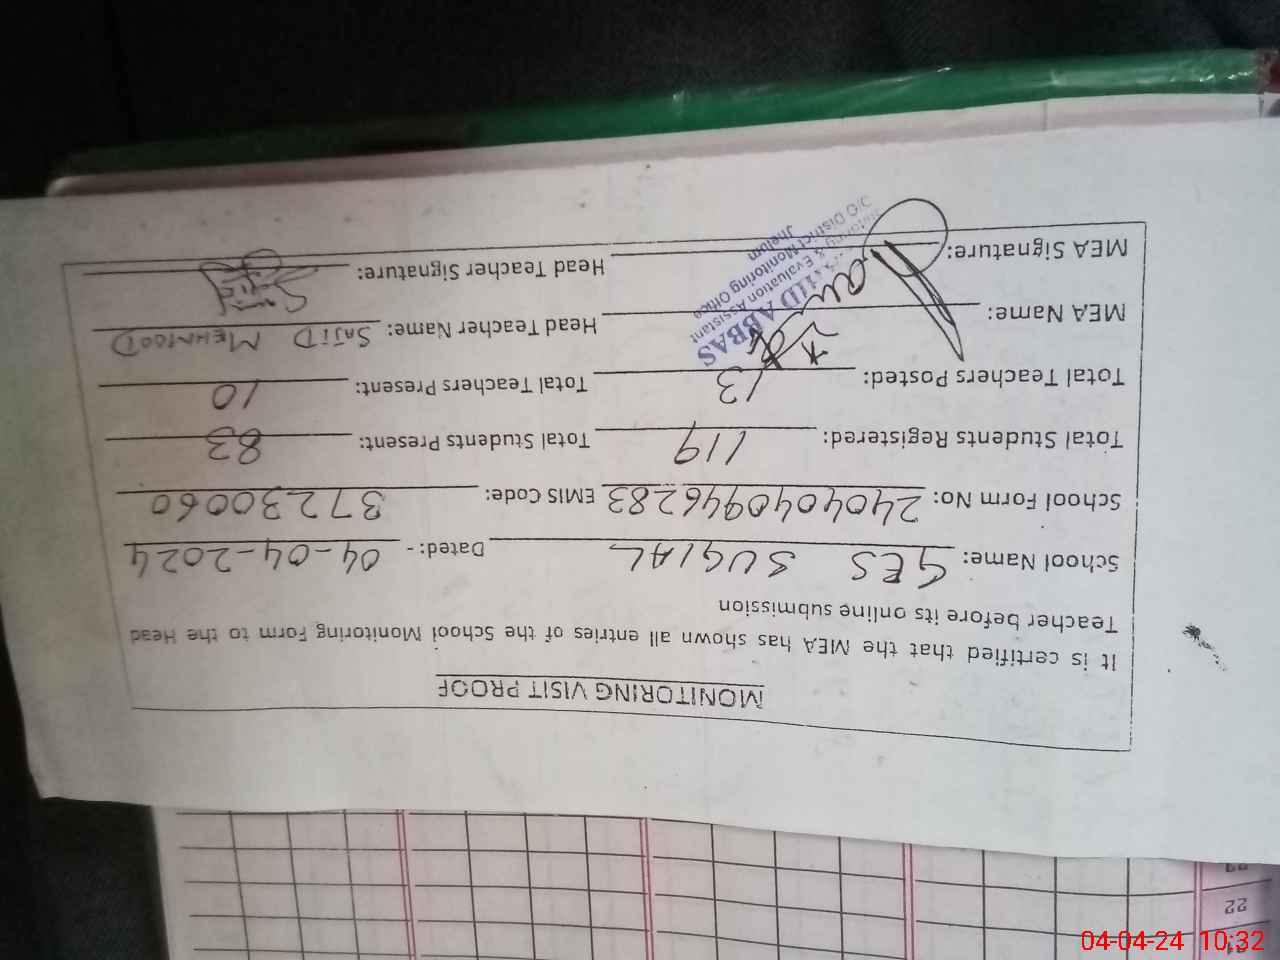 MONITORING VISIT PROOF
It is certified that the MEA has shown all entries of the School Monitoring Form to the Head
Teacher before its online submission
School Name: GES SUGIAL Dated: - 04-04-2024
School Form No: 2404040946283 EMIS Code: 37230060
Total Students Registered: 119 Total Students Present: 83
Total Teachers Posted: 13 Total Teachers Present: 10
MEA Name: Head Teacher Name: SAJID MEHMOOD
MEA Signature: Head Teacher Signature:
ABBAS
& Evaluation Assistant
O/O District Monitoring Office
Jhelum
22
04-04-24 10:32